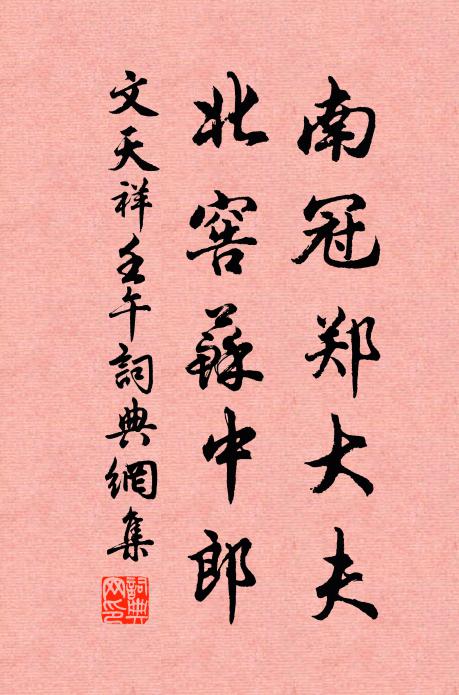 南冠郑大夫
北窖蘇中郎
文天祥壬午詞典網集
詞典網印